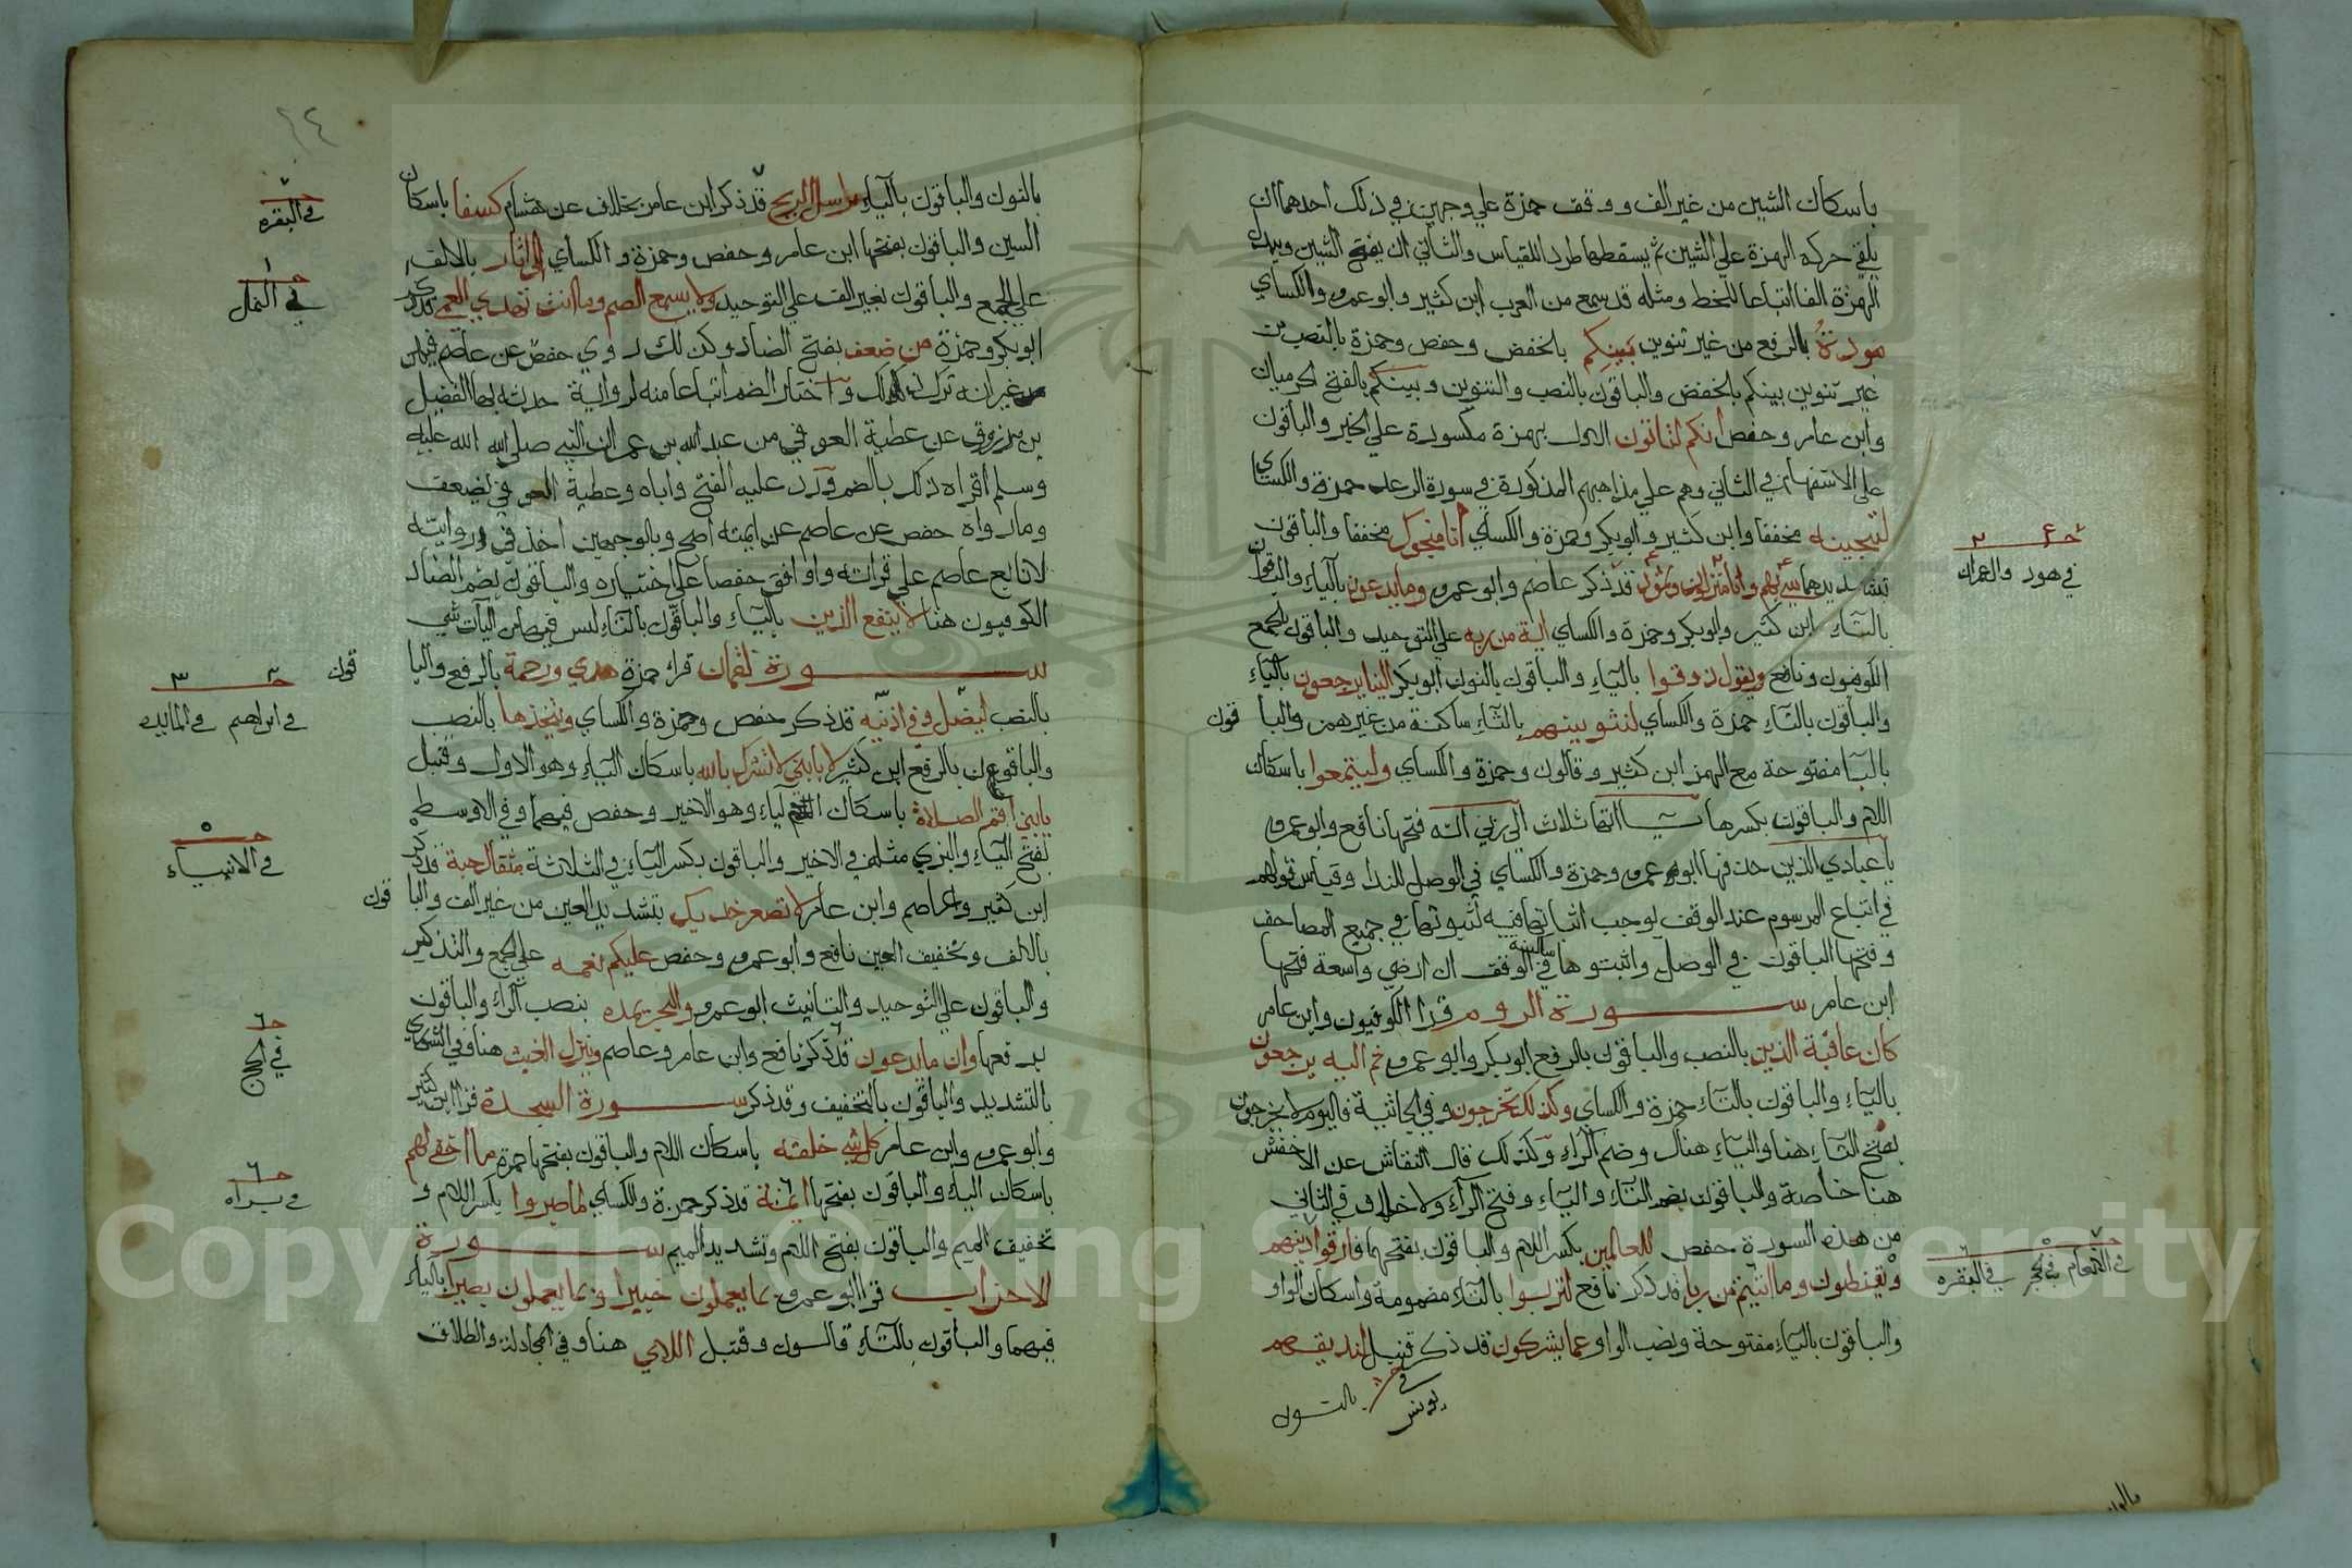 باسكان الشين من غير الف ووقف حمزة علي وجهين في ذلك احدهما ان
يلقي حركه الهمزة علي الشين ثم يسقطها طردا للقياس والثاني ان يفتح الشين ويبدل
الهمزة الفا اتباعا للخط ومثله قد سمع من العرب ابن كثير وابو عمرو والكساي
مودة بالرفع من غير تنوين بينكم بالخفض وحفص وحمزة بالنصب من
غير تنوين بينكم بالخفض والباقون بالنصب والتنوين وبينكم بالفتح الحرميان
وابن عامر وحفص انكم لتاتون الاول بهمزة مكسورة علي الخبر والباقون
علي الاستفهام في الثاني وهم علي مذاهبهم المذكورة في سورة الرعد حمزة والكساي
لننجينه مخففا وابن كثير وابو بكر وحمزة والكساي انا منجوك مخففا والباقون
بتشديدهما سيء بهم وانا منزلون وثمود قد ذكر عاصم وابو عمرو وما يدعون بالياء والباقون
بالتاء ابن كثير وابو بكر وحمزة والكساي اية من ربه علي التوحيد والباقون بالجمع
الكوفيون ونافع ويقول ذوقوا بالياء والباقون بالنون ابو بكر الينا يرجعون بالياء
والباقون بالتاء حمزة والكساي لنثوينهم بالثاء ساكنة من غير همز والبا قون
بالبا مفتوحة مع الهمز ابن كثير وقالون وحمزة والكساي وليتمتعوا باسكان
اللام والباقون بكسرها ياآتها ثلاث الي ربي انه فتحها نافع وابو عمرو
يا عبادي الذين حذفها ابو عمرو وحمزة والكساي في الوصل للندا وقياس قولهم
في اتباع المرسوم عند الوقف يوجب اثباتها فيه لثبوتها في جميع المصاحف
وفتحها الباقون في الوصل واثبتوها ساكنة في الوقف ان ارضي واسعة فتحها
ابن عامر سورة الروم قرا الكوفيون وابن عامر
كان عاقبة الذين بالنصب والباقون بالرفع ابو بكر وابو عمرو ثم اليه يرجعون
بالياء والباقون بالتاء حمزة والكساي وكذلك تخرجون وفي الجاثية فاليوم لا يخرجون
بفتح التاء هنا والياء هناك وضم الراء وكذلك قال النقاش عن الاخفش
هنا خاصة والباقون بضم التاء والياء وفتح الراء ولا خلاف في الثاني
من هذه السورة حفص للعالمين بكسر اللام والباقون بفتحها فارقوا دينهم
ويقنطون وما اتيتم من ربا قد ذكر نافع لتربوا بالتاء مضمومة واسكان الواو
والباقون بالياء مفتوحة ونصب الواو عما يشركون قد ذكر قنبل لنذيقهم
في يونس
بالنون
في هود والعمران
في الانعام في الحجر في البقره
بالنون والباقون بالياء يرسل الريح قد ذكر ابن عامر بخلاف عن هشام كسفا باسكان
السين والباقون بفتحها ابن عامر وحفص وحمزة والكساي الي اثار بالالف
علي الجمع والباقون بغير الف علي التوحيد ولا يسمع الصم وما انت تهدي العمي قد ذكر
ابو بكر وحمزة من ضعف بفتح الضاد وكذلك روي حفص عن عاصم فيهن
غير انه ترك ذلك واختار الضم اتباعا منه لرواية حدثه بها الفضيل
بن مرزوق عن عطية العوفي من عبد الله بن عمر ان النبي صلى الله عليه
وسلم اقراه ذلك بالضم ورد عليه الفتح واباه وعطية العوفي يضعف
وما رواه حفص عن عاصم عن ايمته اصح وبالوجهين اخذ في روايته
لاتابع عاصم علي قراته واوافق حفصا علي اختياره والباقون بضم الضاد
الكوفيون هنا لا ينفع الذين بالياء والباقون بالتاء ليس فيها من اليآت شي
سورة لقمان قرا حمزة هدي ورحمة بالرفع والبا قون
بالنصب ليضل وفي اذنيه قد ذكر حفص وحمزة والكساي ويتخذها بالنصب
والباقون بالرفع ابن كثير يا بني لا تشرك بالله باسكان الياء وهو الاول وقنبل
يابني اقم الصلاة باسكان الياء وهو الاخير وحفص فيهما وفي الاوسط
بفتح الياء والبزي مثله في الاخير والباقون بكسر الياء في الثلاثة مثقال حبة قد ذكر
ابن كثير وعاصم وابن عامر لا تصعر خدك بتشديد العين من غير الف والبا قون
بالالف وتخفيف العين نافع وابو عمرو وحفص عليكم نعمه علي الجمع والتذكير
والباقون علي التوحيد والتانيث ابو عمرو والبحر يمده بنصب الراء والباقون
برفعها وان ما يدعون قد ذكر نافع وابن عامر وعاصم وينزل الغيث هنا وفي الشوري
بالتشديد والباقون بالتخفيف وقد ذكر سورة السجدة قرا ابن كثير
وابو عمرو وابن عامر كل شيء خلقه باسكان اللام والباقون بفتحها حمزة ما اخفي لهم
باسكان الياء والباقون بفتحها ايمة قد ذكر حمزة والكساي لما صبروا بكسر اللام و
تخفيف الميم والباقون بفتح اللام وتشديد الميم سورة
الاحزاب قرا ابو عمرو بما يعملون خبيرا وبما يعملون بصيرا بالياء
فيهما والباقون بالتاء قالون وقنبل اللاي هنا وفي المجادلة والطلاق
في البقره
في النمل
في ابراهيم في المايده
في الانبياء
في الحج
في براه
Copyright © King Saud University